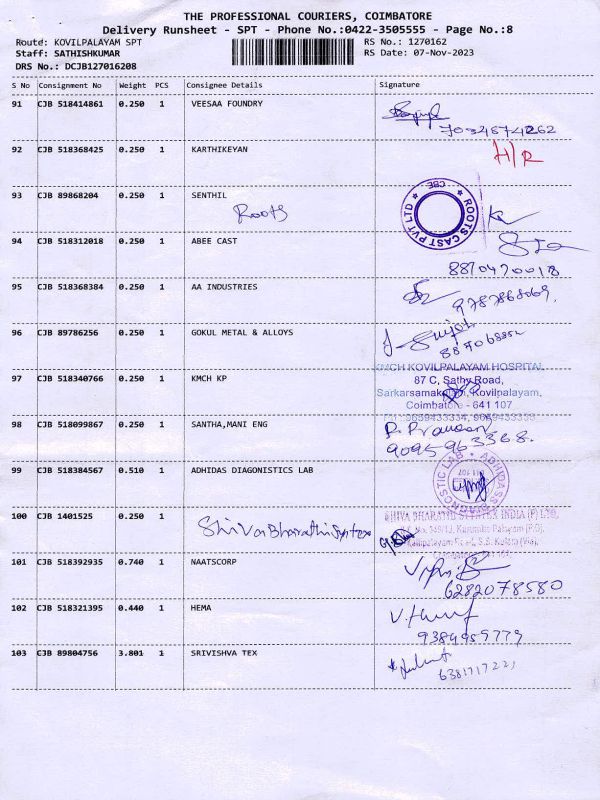 THE PROFESSIONAL COURIERS, COIMBATORE
Delivery Runsheet - SPT - Phone No.:0422-3505555 - Page No.:8
Route: KOVILPALAYAM SPT RS No.: 1270162
Staff: SATHISHKUMAR RS Date: 07-Nov-2023
DRS No.: DCJB127016208
S No Consignment No Weight PCS Consignee Details Signature
91 CJB 518414861 0.250 1 VEESAA FOUNDRY
7034574262
92 CJB 518368425 0.250 1 KARTHIKEYAN H/R
93 CJB 89868204 0.250 1 SENTHIL
Roots
ROOTS CAST PVT LTD * CBE *
94 CJB 518312018 0.250 1 ABEE CAST
8870470018
95 CJB 518368384 0.250 1 AA INDUSTRIES
9787868069.
96 CJB 89786256 0.250 1 GOKUL METAL & ALLOYS
KMCH KOVILPALAYAM HOSPITAL
97 CJB 518340766 0.250 1 KMCH KP 87 C, Sathy Road,
Kovilpalayam,
Coimbatore - 641 107
98 CJB 518099867 0.250 1 SANTHA,MANI ENG
9095963368.
99 CJB 518384567 0.510 1 ADHIDAS DIAGONISTICS LAB
100 CJB 1401525 0.250 1
101 CJB 518392935 0.740 1 NAATSCORP
6282078580
102 CJB 518321395 0.440 1 HEMA
9384959779
103 CJB 89804756 3.801 1 SRIVISHVA TEX